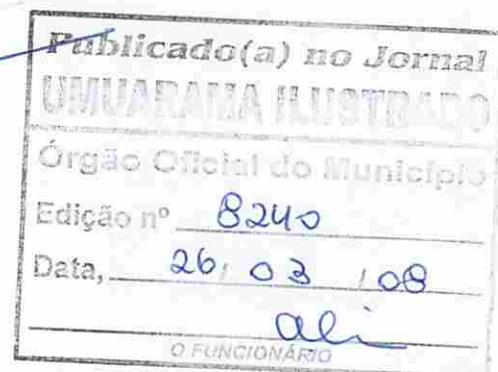 Publicado(a) no Jornal
UMUARAMA ILUSTRADO
Órgão Oficial do Município
Edição nº 8240
Data, 26 / 03 / 08
O FUNCIONÁRIO